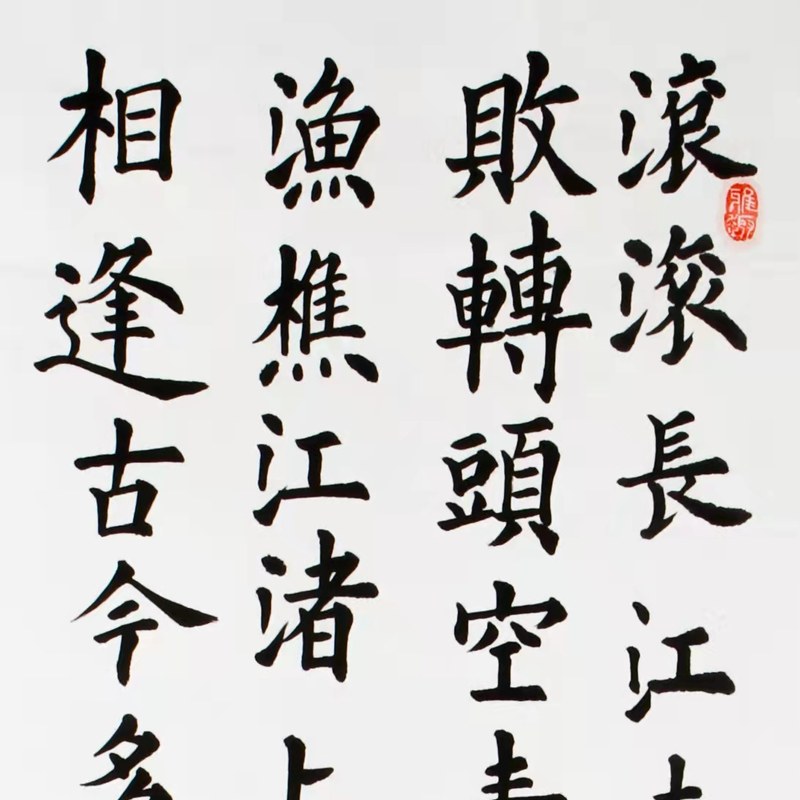 滾滾長江
敗轉頭空
漁樵江渚
相逢古今多